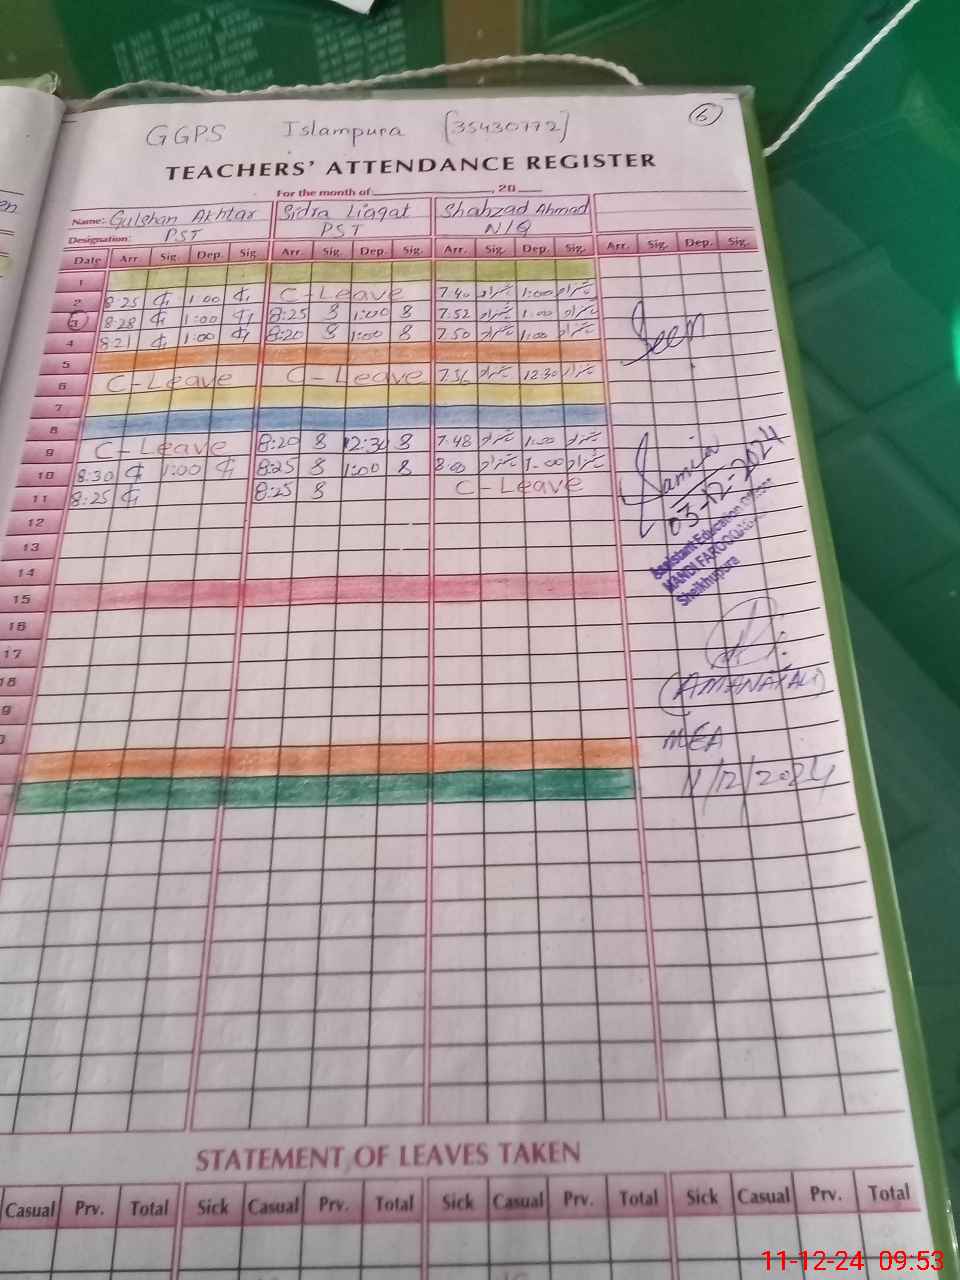 6
GGPS Islampura [35430772]
TEACHERS' ATTENDANCE REGISTER
For the month of , 20
Name: Gulshan Akhtar Sidra Liaqat Shahzad Ahmad
Designation: PST PST N/Q
Date Arr. Sig. Dep. Sig. Arr. Sig. Dep. Sig. Arr. Sig. Dep. Sig. Arr. Sig. Dep. Sig.
1
2 8:25 1:00 C-Leave 7:40 شہزاد 1:00 شہزاد
3 8:28 1:00 8:25 S 1:00 S 7:52 شہزاد 1:00 شہزاد
4 8:21 1:00 8:20 S 1:00 S 7:50 شہزاد 1:00 شہزاد
Seen
5
6 C-Leave C-Leave 7:56 شہزاد 12:30 شہزاد
7
8
9 C-Leave 8:20 S 12:30 S 7:48 شہزاد 1:00 شہزاد
10 8:30 1:00 8:25 S 1:00 S 8:00 شہزاد 1:00 شہزاد
11 8:25 8:25 S C-Leave
Samia
03-12-2024
Assistant Education Officer
MANDI FAROOQABAD
Sheikhupura
12
13
14
15
16
17
18
9
(AMANAT ALI)
MEA
11/12/2024
STATEMENT OF LEAVES TAKEN
Casual Prv. Total Sick Casual Prv. Total Sick Casual Prv. Total Sick Casual Prv. Total
11-12-24 09:53